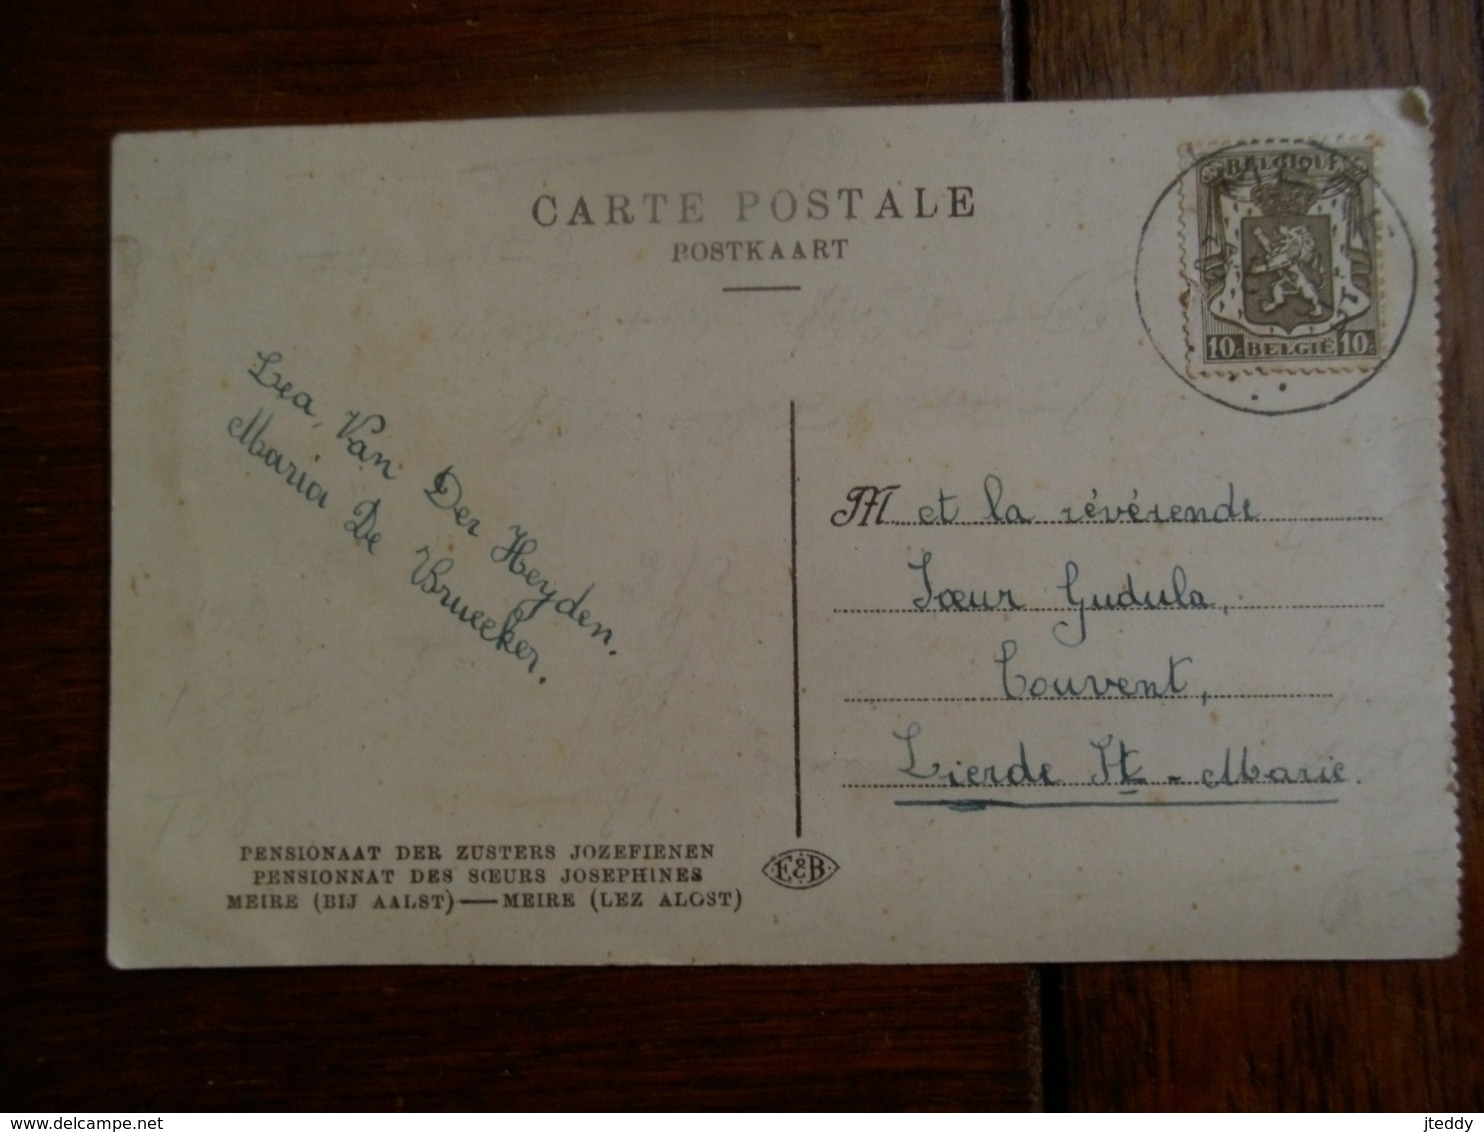 CARTE POSTALE
POSTKAART
BELGIQUE
10c BELGIË 10c
Lea, Van Der Heyden.
Maria De Brueeker.
M et la révérende
Sœur Gudula,
Couvent,
Lierde St-Marie.
PENSIONAAT DER ZUSTERS JOZEFIENEN
PENSIONNAT DES SŒURS JOSEPHINES
MEIRE (BIJ AALST)—MEIRE (LEZ ALOST)
E&B
delcampe.net
jteddy